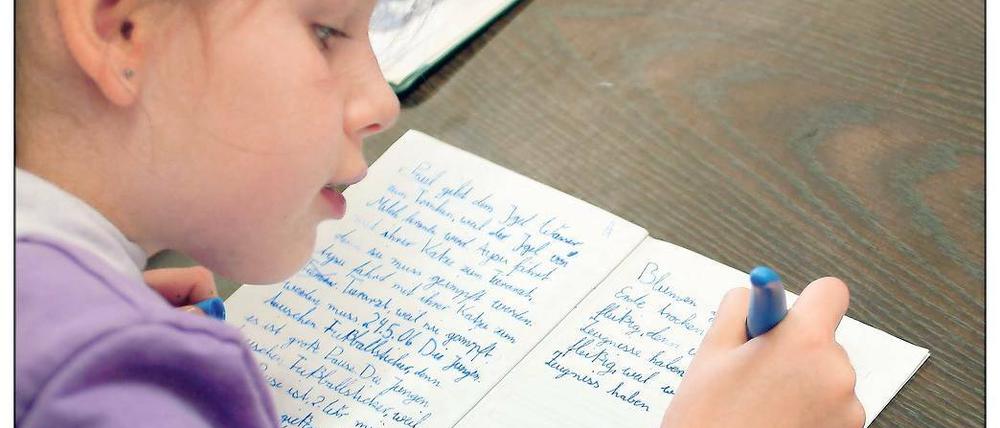 Paul gibt dem Igel Wasser
zum Trinken, weil der Igel von
Milch krank wird. Aysu fährt
mit ihrer Katze zum Tierarzt,
denn sie muss geimpft werden.
Aysu fährt mit ihrer Katze zum
Tierarzt, weil sie geimpft
werden muss 24.5.06 Die Jungen
tauschen Fußballsticker, denn
es ist große Pause. Die Jungen
Fußballsticker, weil
ist. 2 Uhr
Blumen
Ende trocken
fleißig, denn
Zeugnisse haben
fleißig, weil
Zeugniss haben